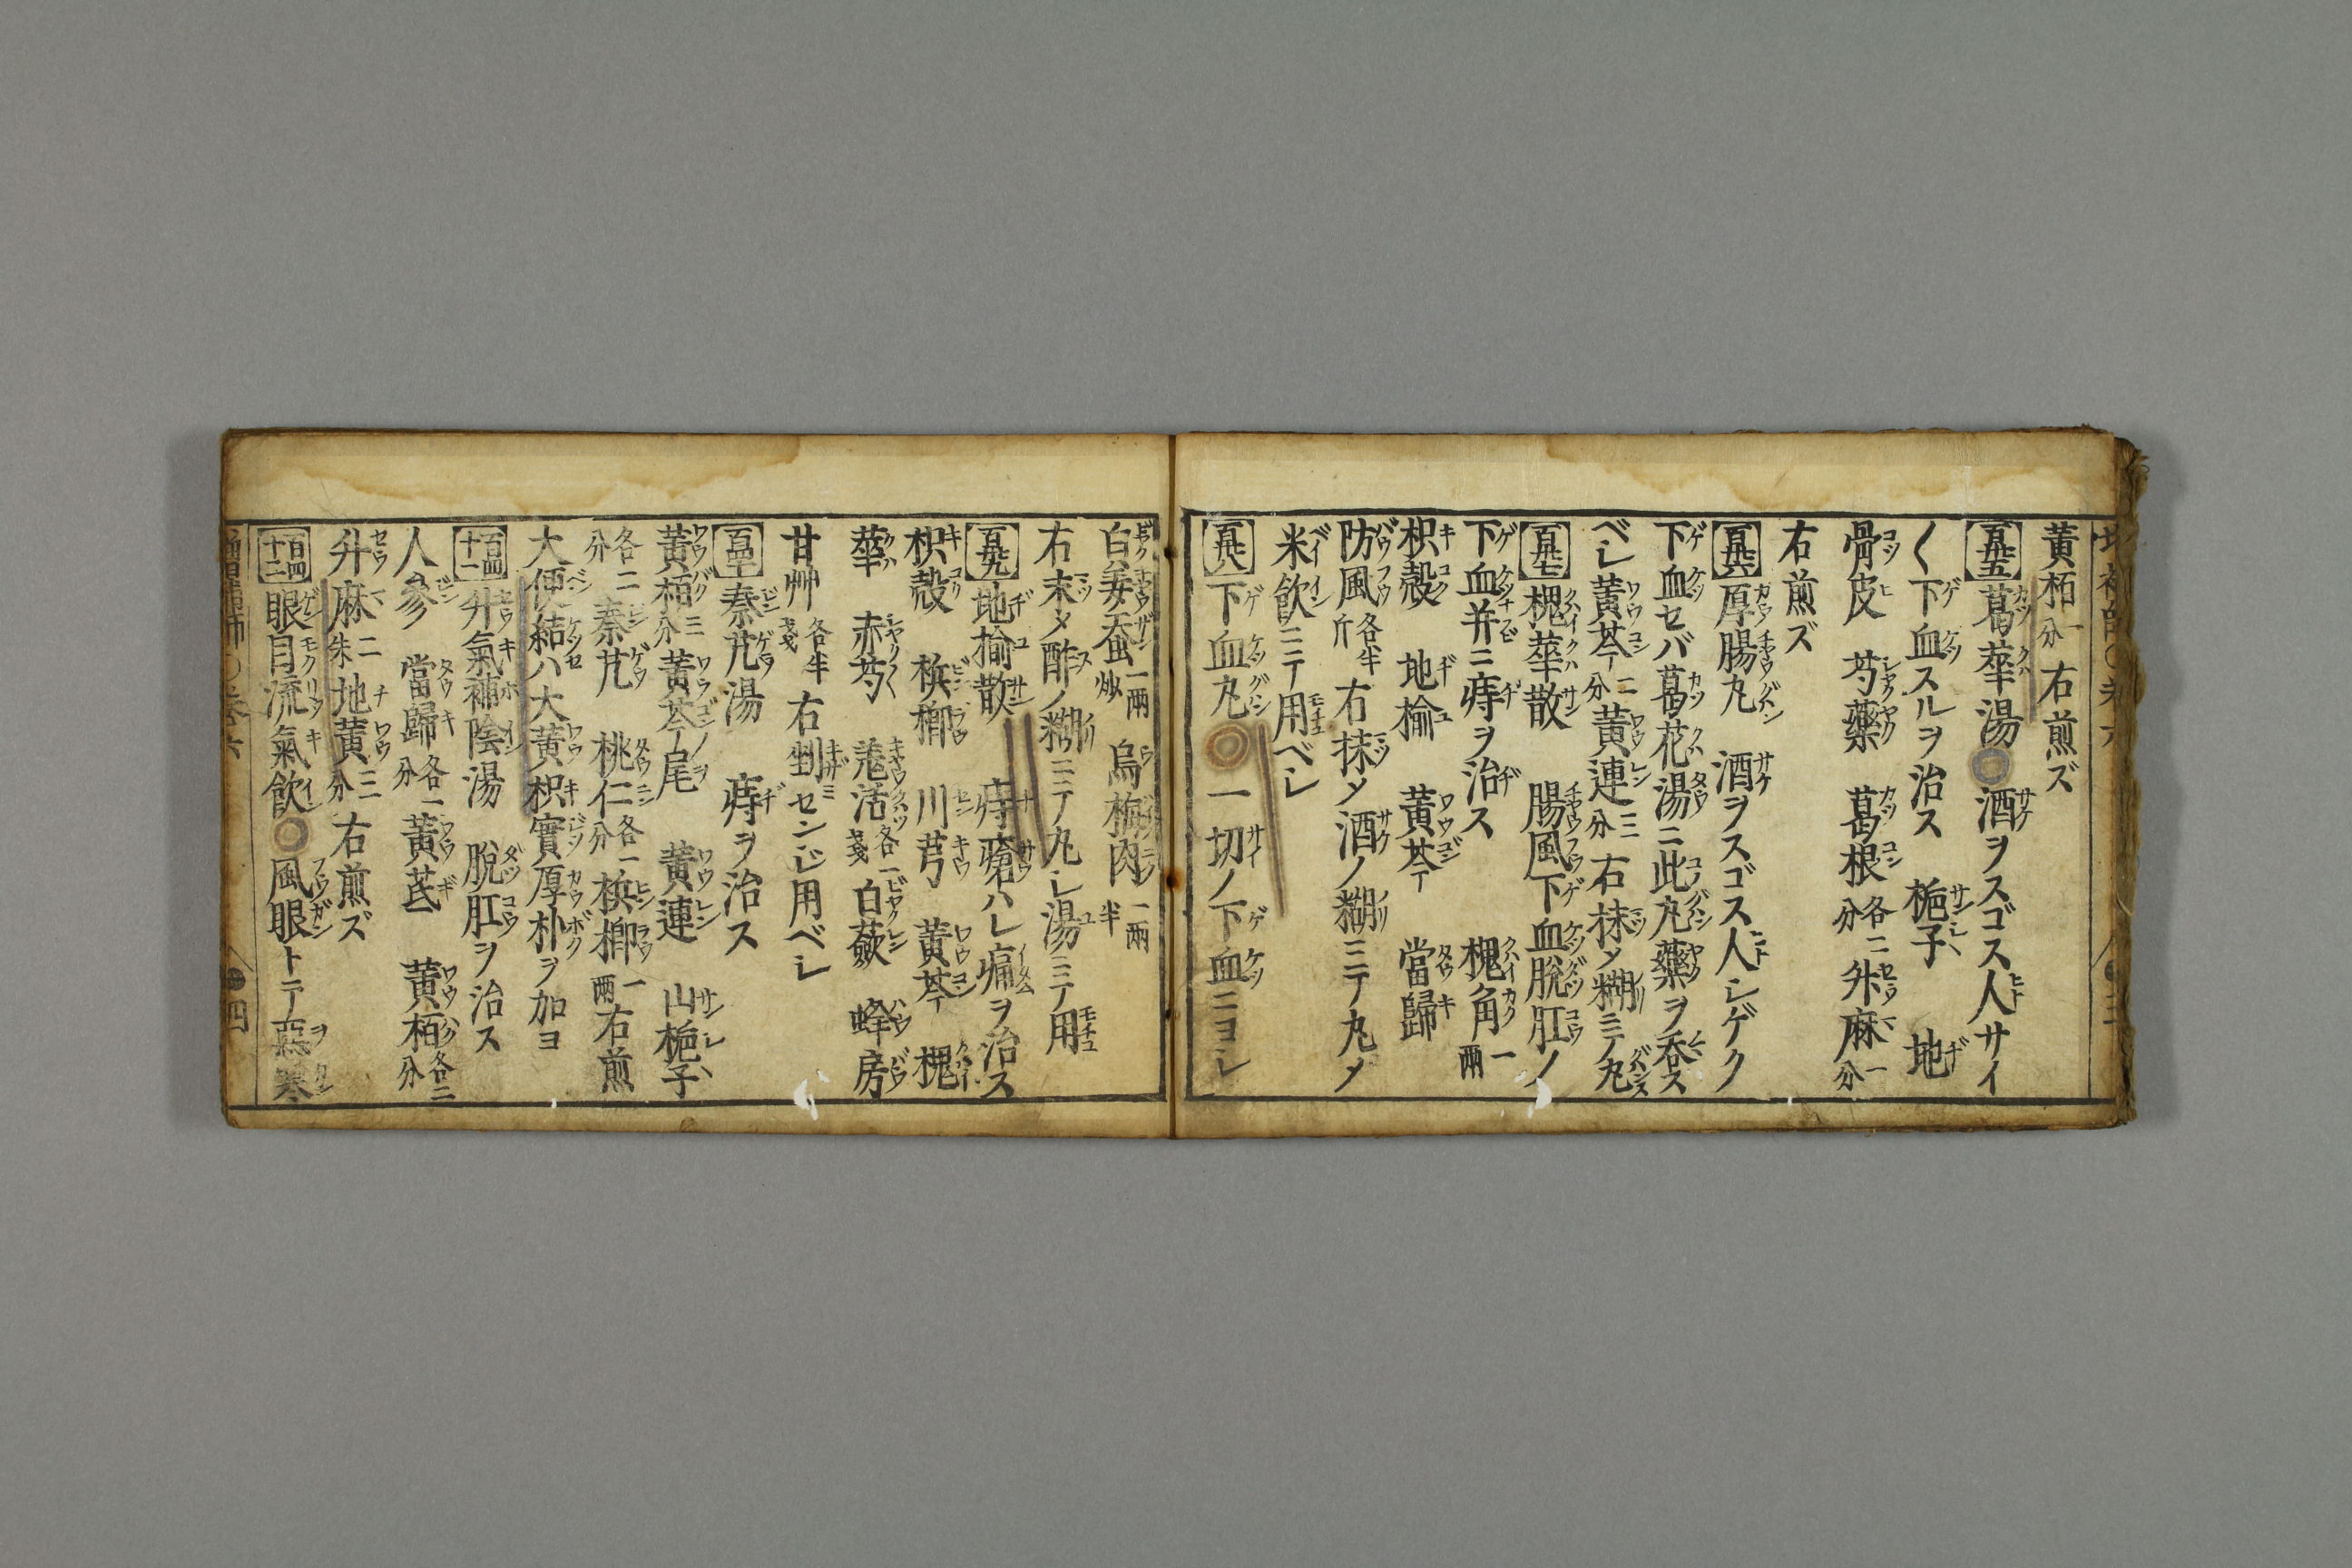 黄栢一分 右煎ズ
百卅五 葛華湯 酒ヲスゴス人サイ
く下血スルヲ治ス 梔子 地
骨皮 芍藥 葛根各二分 升麻一分
右煎ズ
百卅六 厚腸丸 酒ヲスゴス人シゲク
下血セバ葛花湯ニ此丸藥ヲ呑ス
ベシ黄芩二分 黄連三分 右抹メ糊ニテ丸ス
百卅七 槐華散 腸風下血脫肛ノ
下血并ニ痔ヲ治ス 槐角一兩
枳殼 地楡 黄芩 當歸
防風各半斤 右抹メ酒ノ糊ニテ丸メ
米飮ニテ用ベシ
百卅八 下血丸 一切ノ下血ニヨシ
白姜蚕一兩炒 烏梅肉一兩半
右末メ酢ノ糊ニテ丸シ湯ニテ用
百卅九 地楡散 痔瘡ハレ痛ヲ治ス
枳殼 檳榔 川芎 黄芩 槐
華 赤芍 羗活各一戔 白蘞 蜂房
甘艸各半戔 右剉センジ用ベシ
百四十 秦艽湯 痔ヲ治ス
黄栢三分 黄芩尾 黄連 山梔子
各二分 秦艽 桃仁各一分 檳榔一兩 右煎
大便結ハ大黄枳實厚朴ヲ加ヨ
百四十一 升氣補陰湯 脫肛ヲ治ス
人參 當歸各一分 黄芪 黄栢各二分
升麻二朱 地黄三分 右煎ズ
百四十二 眼目流氣飮 風眼トテ惡寒
四